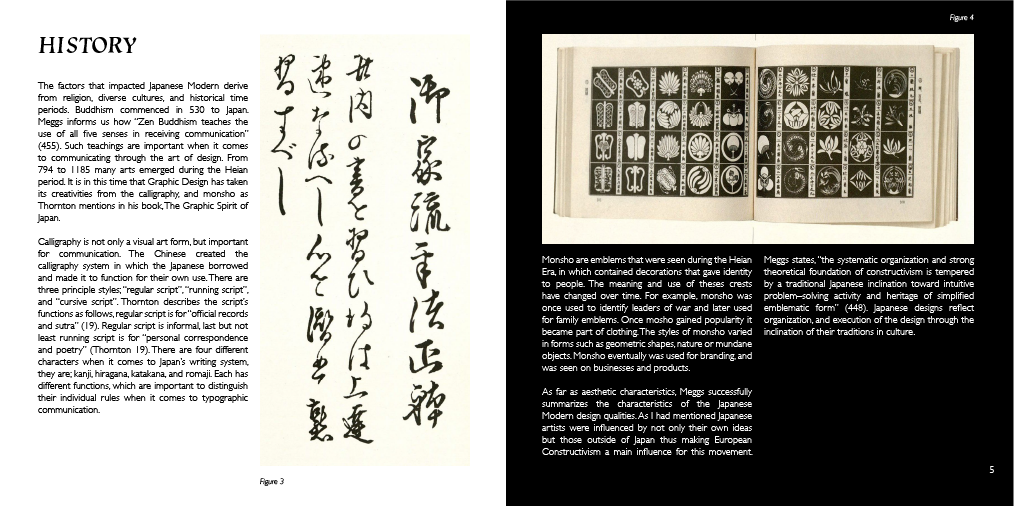 HISTORY
The factors that impacted Japanese Modern derive
from religion, diverse cultures, and historical time
periods. Buddhism commenced in 530 to Japan.
Meggs informs us how “Zen Buddhism teaches the
use of all five senses in receiving communication”
(455). Such teachings are important when it comes
to communicating through the art of design. From
794 to 1185 many arts emerged during the Heian
period. It is in this time that Graphic Design has taken
its creativities from the calligraphy, and monsho as
Thornton mentions in his book, The Graphic Spirit of
Japan.
Calligraphy is not only a visual art form, but important
for communication. The Chinese created the
calligraphy system in which the Japanese borrowed
and made it to function for their own use. There are
three principle styles; “regular script”, “running script”,
and “cursive script”. Thornton describes the script’s
functions as follows, regular script is for “official records
and sutra” (19). Regular script is informal, last but not
least running script is for “personal correspondence
and poetry” (Thornton 19). There are four different
characters when it comes to Japan’s writing system,
they are; kanji, hiragana, katakana, and romaji. Each has
different functions, which are important to distinguish
their individual rules when it comes to typographic
communication.
御家流手法正
其内の書を習ひ得は上達
速なるへし
習すべし
Figure 3
Figure 4
Monsho are emblems that were seen during the Heian
Era, in which contained decorations that gave identity
to people. The meaning and use of theses crests
have changed over time. For example, monsho was
once used to identify leaders of war and later used
for family emblems. Once mosho gained popularity it
became part of clothing. The styles of monsho varied
in forms such as geometric shapes, nature or mundane
objects. Monsho eventually was used for branding, and
was seen on businesses and products.
As far as aesthetic characteristics, Meggs successfully
summarizes the characteristics of the Japanese
Modern design qualities. As I had mentioned Japanese
artists were influenced by not only their own ideas
but those outside of Japan thus making European
Constructivism a main influence for this movement.
Meggs states, “the systematic organization and strong
theoretical foundation of constructivism is tempered
by a traditional Japanese inclination toward intuitive
problem–solving activity and heritage of simplified
emblematic form” (448). Japanese designs reflect
organization, and execution of the design through the
inclination of their traditions in culture.
5